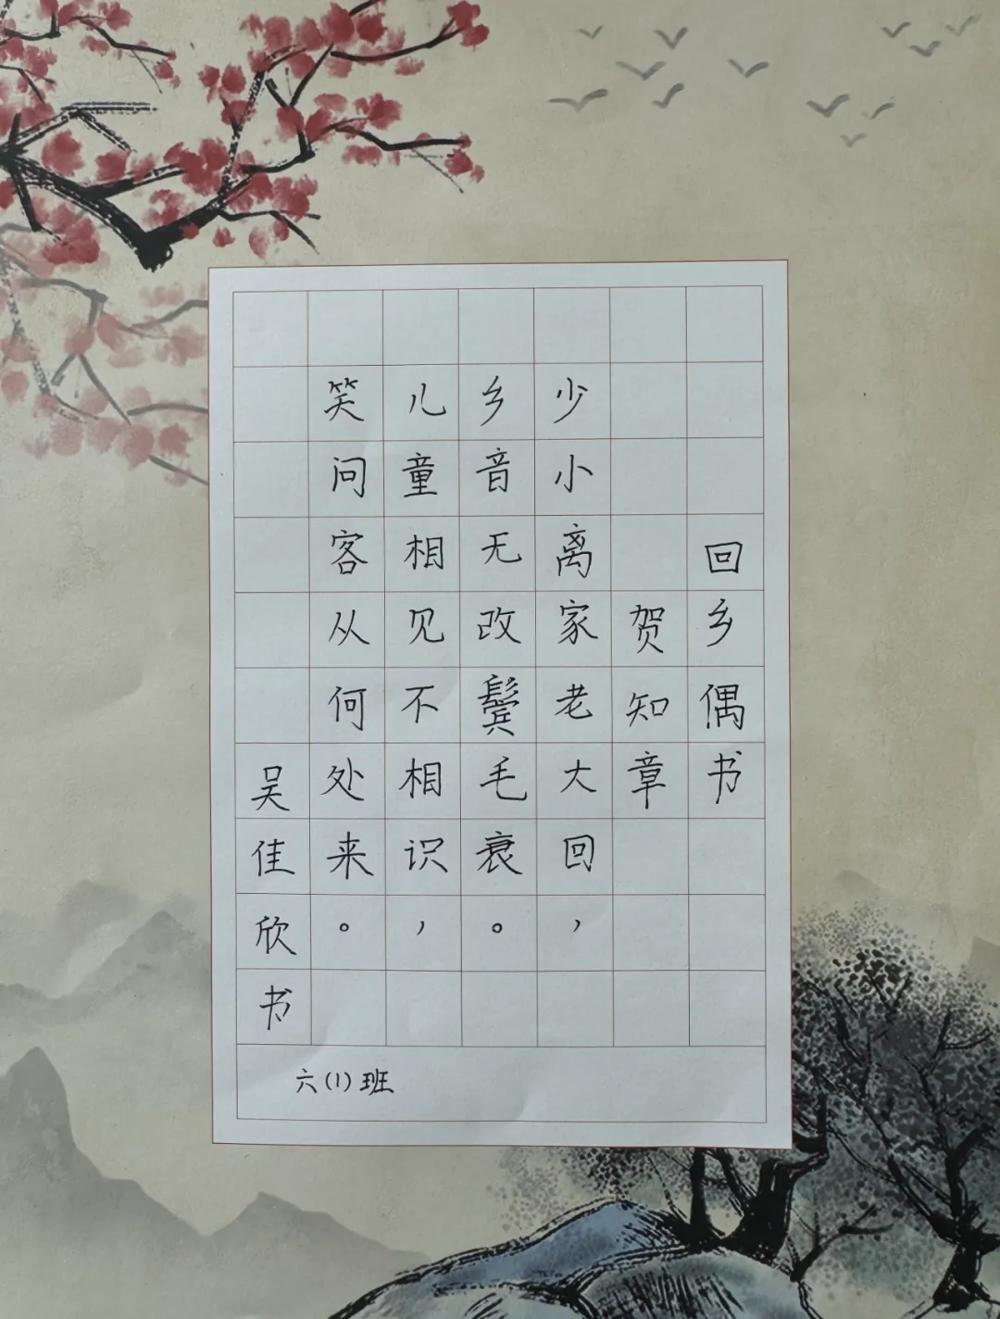 回乡偶书
贺知章
少小离家老大回，
乡音无改鬓毛衰。
儿童相见不相识，
笑问客从何处来。
吴佳欣书
六(1)班